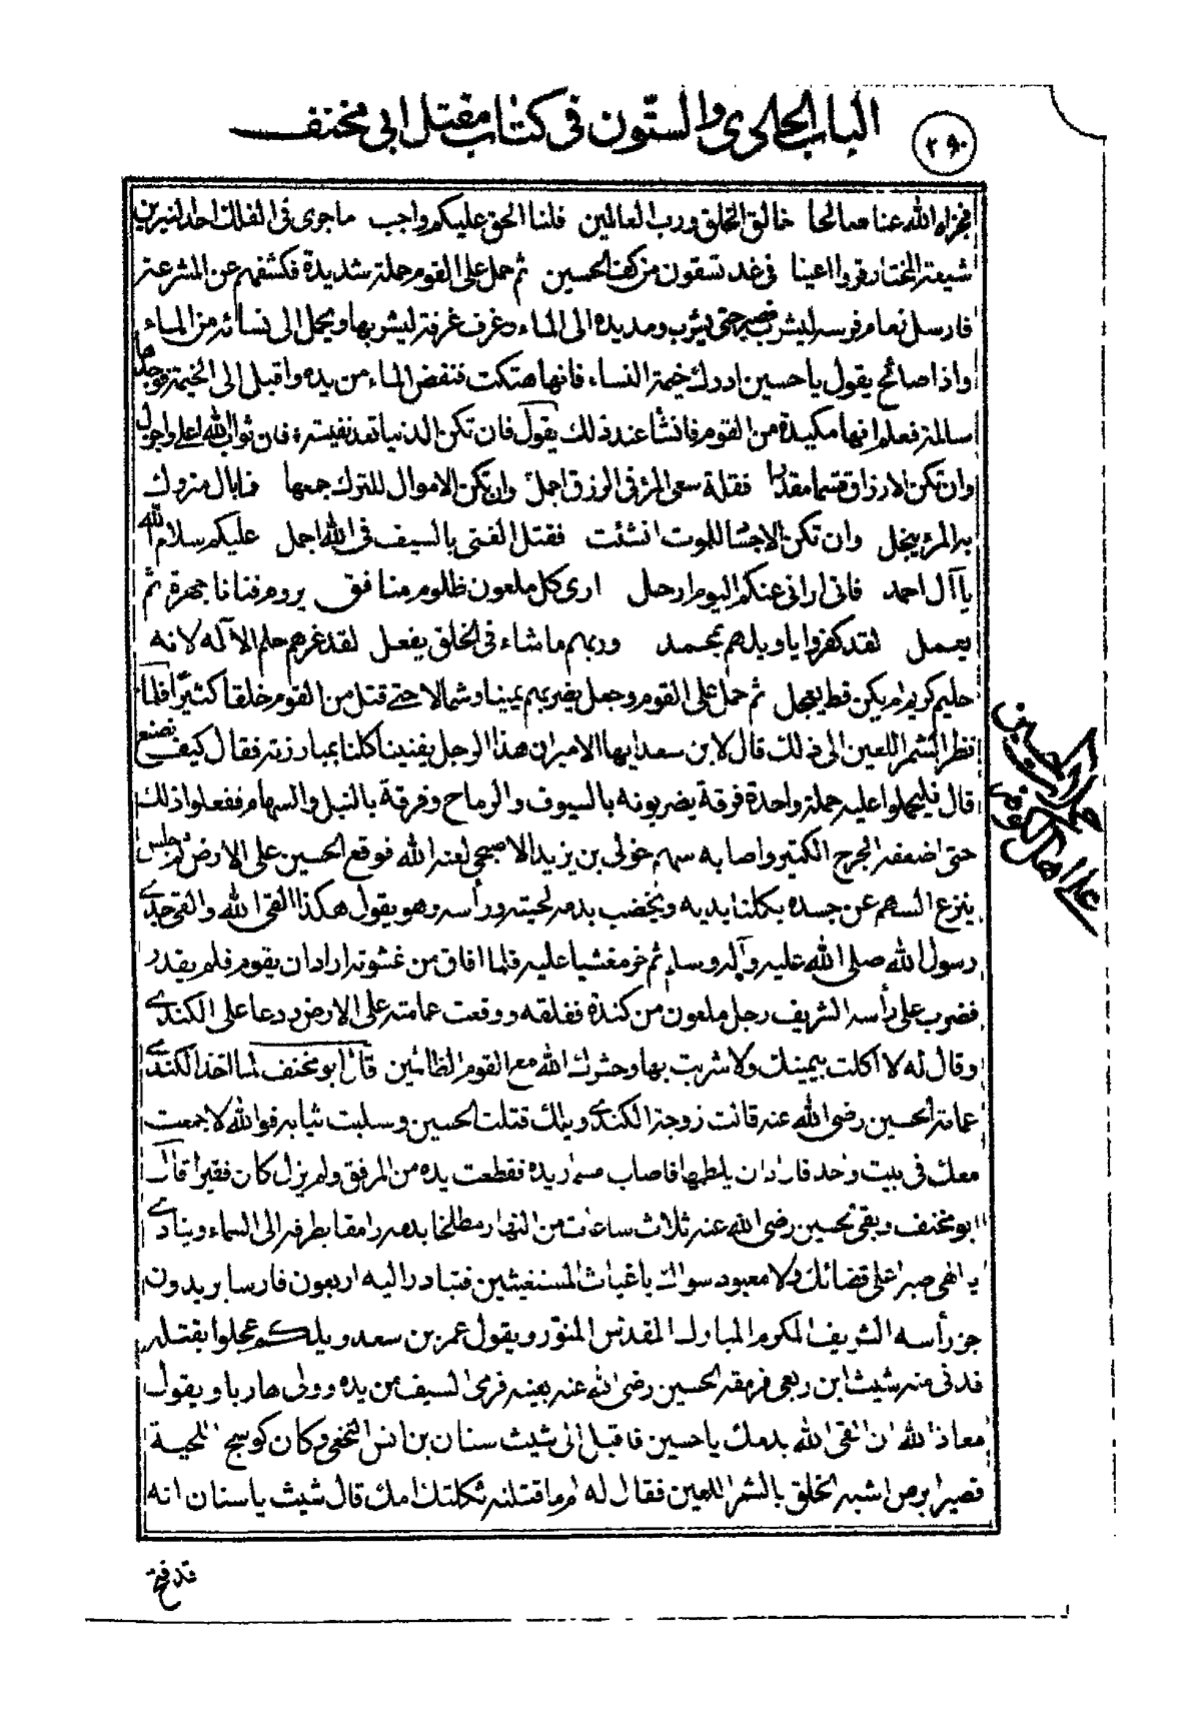 الباب الحادى والستون فى كتاب مقتل ابى مخنف
٢٩٠
فجزاه الله عنا صالحا خالق الخلق ورب العالمين فلنا الحق عليكم واجب ما جرى فى الفلك احد النيرين
شيعة المختار قروا اعينا فى غد تسقون من كف الحسين ثم حمل على القوم حملة شديدة فكشفهم عن المشرعة
فارسل زمام فرسه ليشرب فصبر حتى يشرب ومد يده الى الماء وغرف غرفة ليشربها ويحمل الى نسائه من الماء
واذا صائح يقول يا حسين ادرك خيمة النساء فانها هتكت فنفض الماء من يده واقبل الى الخيمة فوجدها
سالمة فعلم انها مكيدة من القوم فانشأ عند ذلك يقول فان تكن الدنيا تعد نفيسة فان ثواب الله اعلى واجزل
وان تكن الارزاق قسما مقدرا فقلة سعى المرء فى الرزق اجمل وان تكن الاموال للترك جمعها فما بال متروك
به المرء يبخل وان تكن الاجساد للموت انشئت فقتل الفتى بالسيف فى الله اجمل عليكم سلام الله
يا آل احمد فانى ارانى عنكم اليوم ارحل ارى كل ملعون ظلوم منافق يروم فنانا جهرة ثم
يعمل لقد كفروا يا ويلهم بمحمد وربهم ما شاء فى الخلق يفعل لقد غرهم حلم الآله لانه
حليم كريم لم يكن قط يعجل ثم حمل على القوم وجعل يضربهم يمينا وشمالا حتى قتل من القوم خلقا كثيرا فلما
نظر الشمر اللعين الى ذلك قال لابن سعد ايها الامير ان هذا الرجل يفنينا كلنا بمبارزته فقال كيف نصنع
قال فليحملوا عليه حملة واحدة فرقة يضربونه بالسيوف والرماح وفرقة بالنبل والسهام ففعلوا ذلك
حتى اضعفه الجرح الكثير واصابه سهم خولى بن يزيد الاصبحى لعنه الله فوقع الحسين على الارض ثم جلس
ينزع السهم عن جسده بكلتا يديه ويخضب بدمه لحيته ورأسه وهو يقول هكذا القى الله والقى جدى
رسول الله صلى الله عليه وآله وسلم ثم خر مغشيا عليه فلما افاق من غشوته اراد ان يقوم فلم يقدر
فضرب على رأسه الشريف رجل ملعون من كندة ففلقه ووقعت عمامته على الارض ودعا على الكندى
وقال له لا اكلت بيمينك ولا شربت بها وحشرك الله مع القوم الظالمين قال ابو مخنف لما اخذ الكندى
عمامة الحسين رضى الله عنه قالت زوجة الكندى ويلك قتلت الحسين وسلبت ثيابه فوالله لا جمعت
معك فى بيت واحد فاراد ان يلطمها فاصاب مسمار يده فقطعت يده من المرفق ولم يزل كان فقيرا قال
ابو مخنف وبقى الحسين رضى الله عنه ثلاث ساعات من النهار ملطخا بدمه رامقا بطرفه الى السماء وينادى
يا الهى صبرا على قضائك ولا معبود سواك يا غياث المستغيثين فتبادر اليه اربعون فارسا يريدون
جز رأسه الشريف المكرم المبارك المقدس المنور ويقول عمر بن سعد ويلكم عجلوا بقتله
فدنى منه شبث ابن ربعى فرمقه الحسين رضى الله عنه بعينه فرمى السيف من يده وولى هاربا ويقول
معاذ الله ان القى الله بدمك يا حسين فاقبل الى شبث سنان بن انس النخعى وكان كوسج اللحية
قصيرا برص اشبه الخلق بالشمر اللعين فقال له لم ما قتلته ثكلتك امك قال شبث يا سنان انه
حملة الحسين
على اهل الكوفة
قد فتح